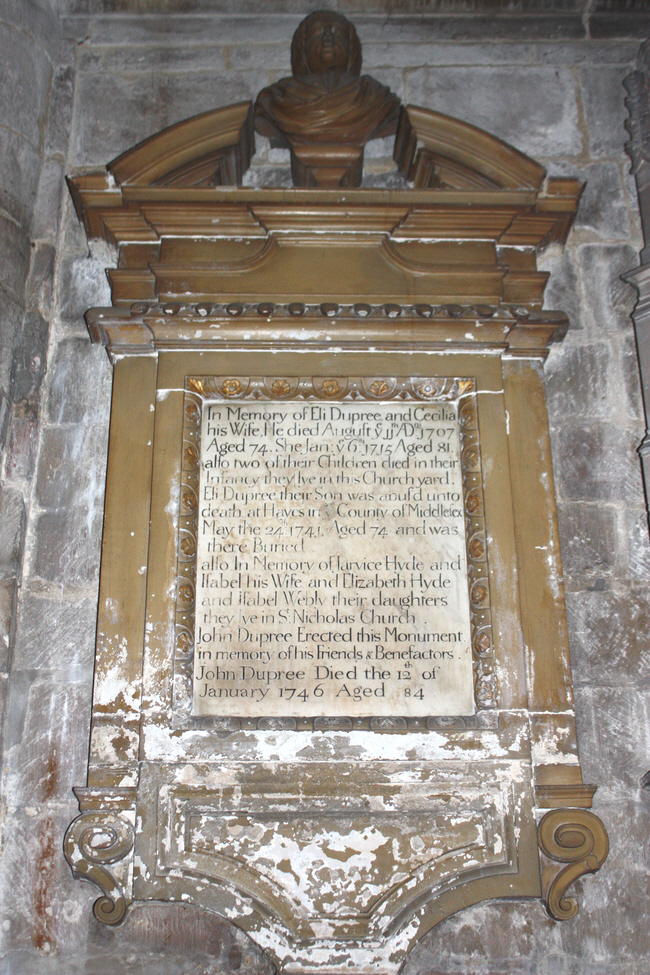 In Memory of Eli Dupree and Cecilia
his Wife. He died Auguſt yͤ 11ᵗʰ ADⁿⁱ 1707
Aged 74. She Jan: yͤ 6ᵗʰ 1715 Aged 81
alſo two of their Children died in their
Infancy they lye in this Church yard.
Eli Dupree their Son was abuſ'd unto
death at Hayes in yͤ County of Middleſex
May the 24ᵗʰ 1741. Aged 74 and was
there Buried
alſo In Memory of Jarvice Hyde and
Iſabel his Wife and Elizabeth Hyde
and iſabel Webly their daughters
they lye in Sᵗ Nicholas Church.
John Dupree Erected this Monument
in memory of his Friends & Benefactors.
John Dupree Died the 12ᵗʰ of
January 1746 Aged 84